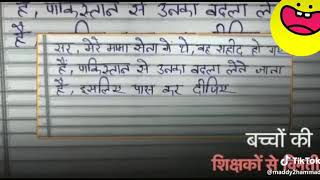 है, पाकिस्तान से उनका बदला लेने
है,
सर, मेरे मामा सेना मे थे, वह शहीद हो गए
हैं, पाकिस्तान से उनका बदला लेने जाना
है, इसलिए पास कर दीजिए
बच्चों की
शिक्षकों से विनती
TikTok
@maddy2hammad